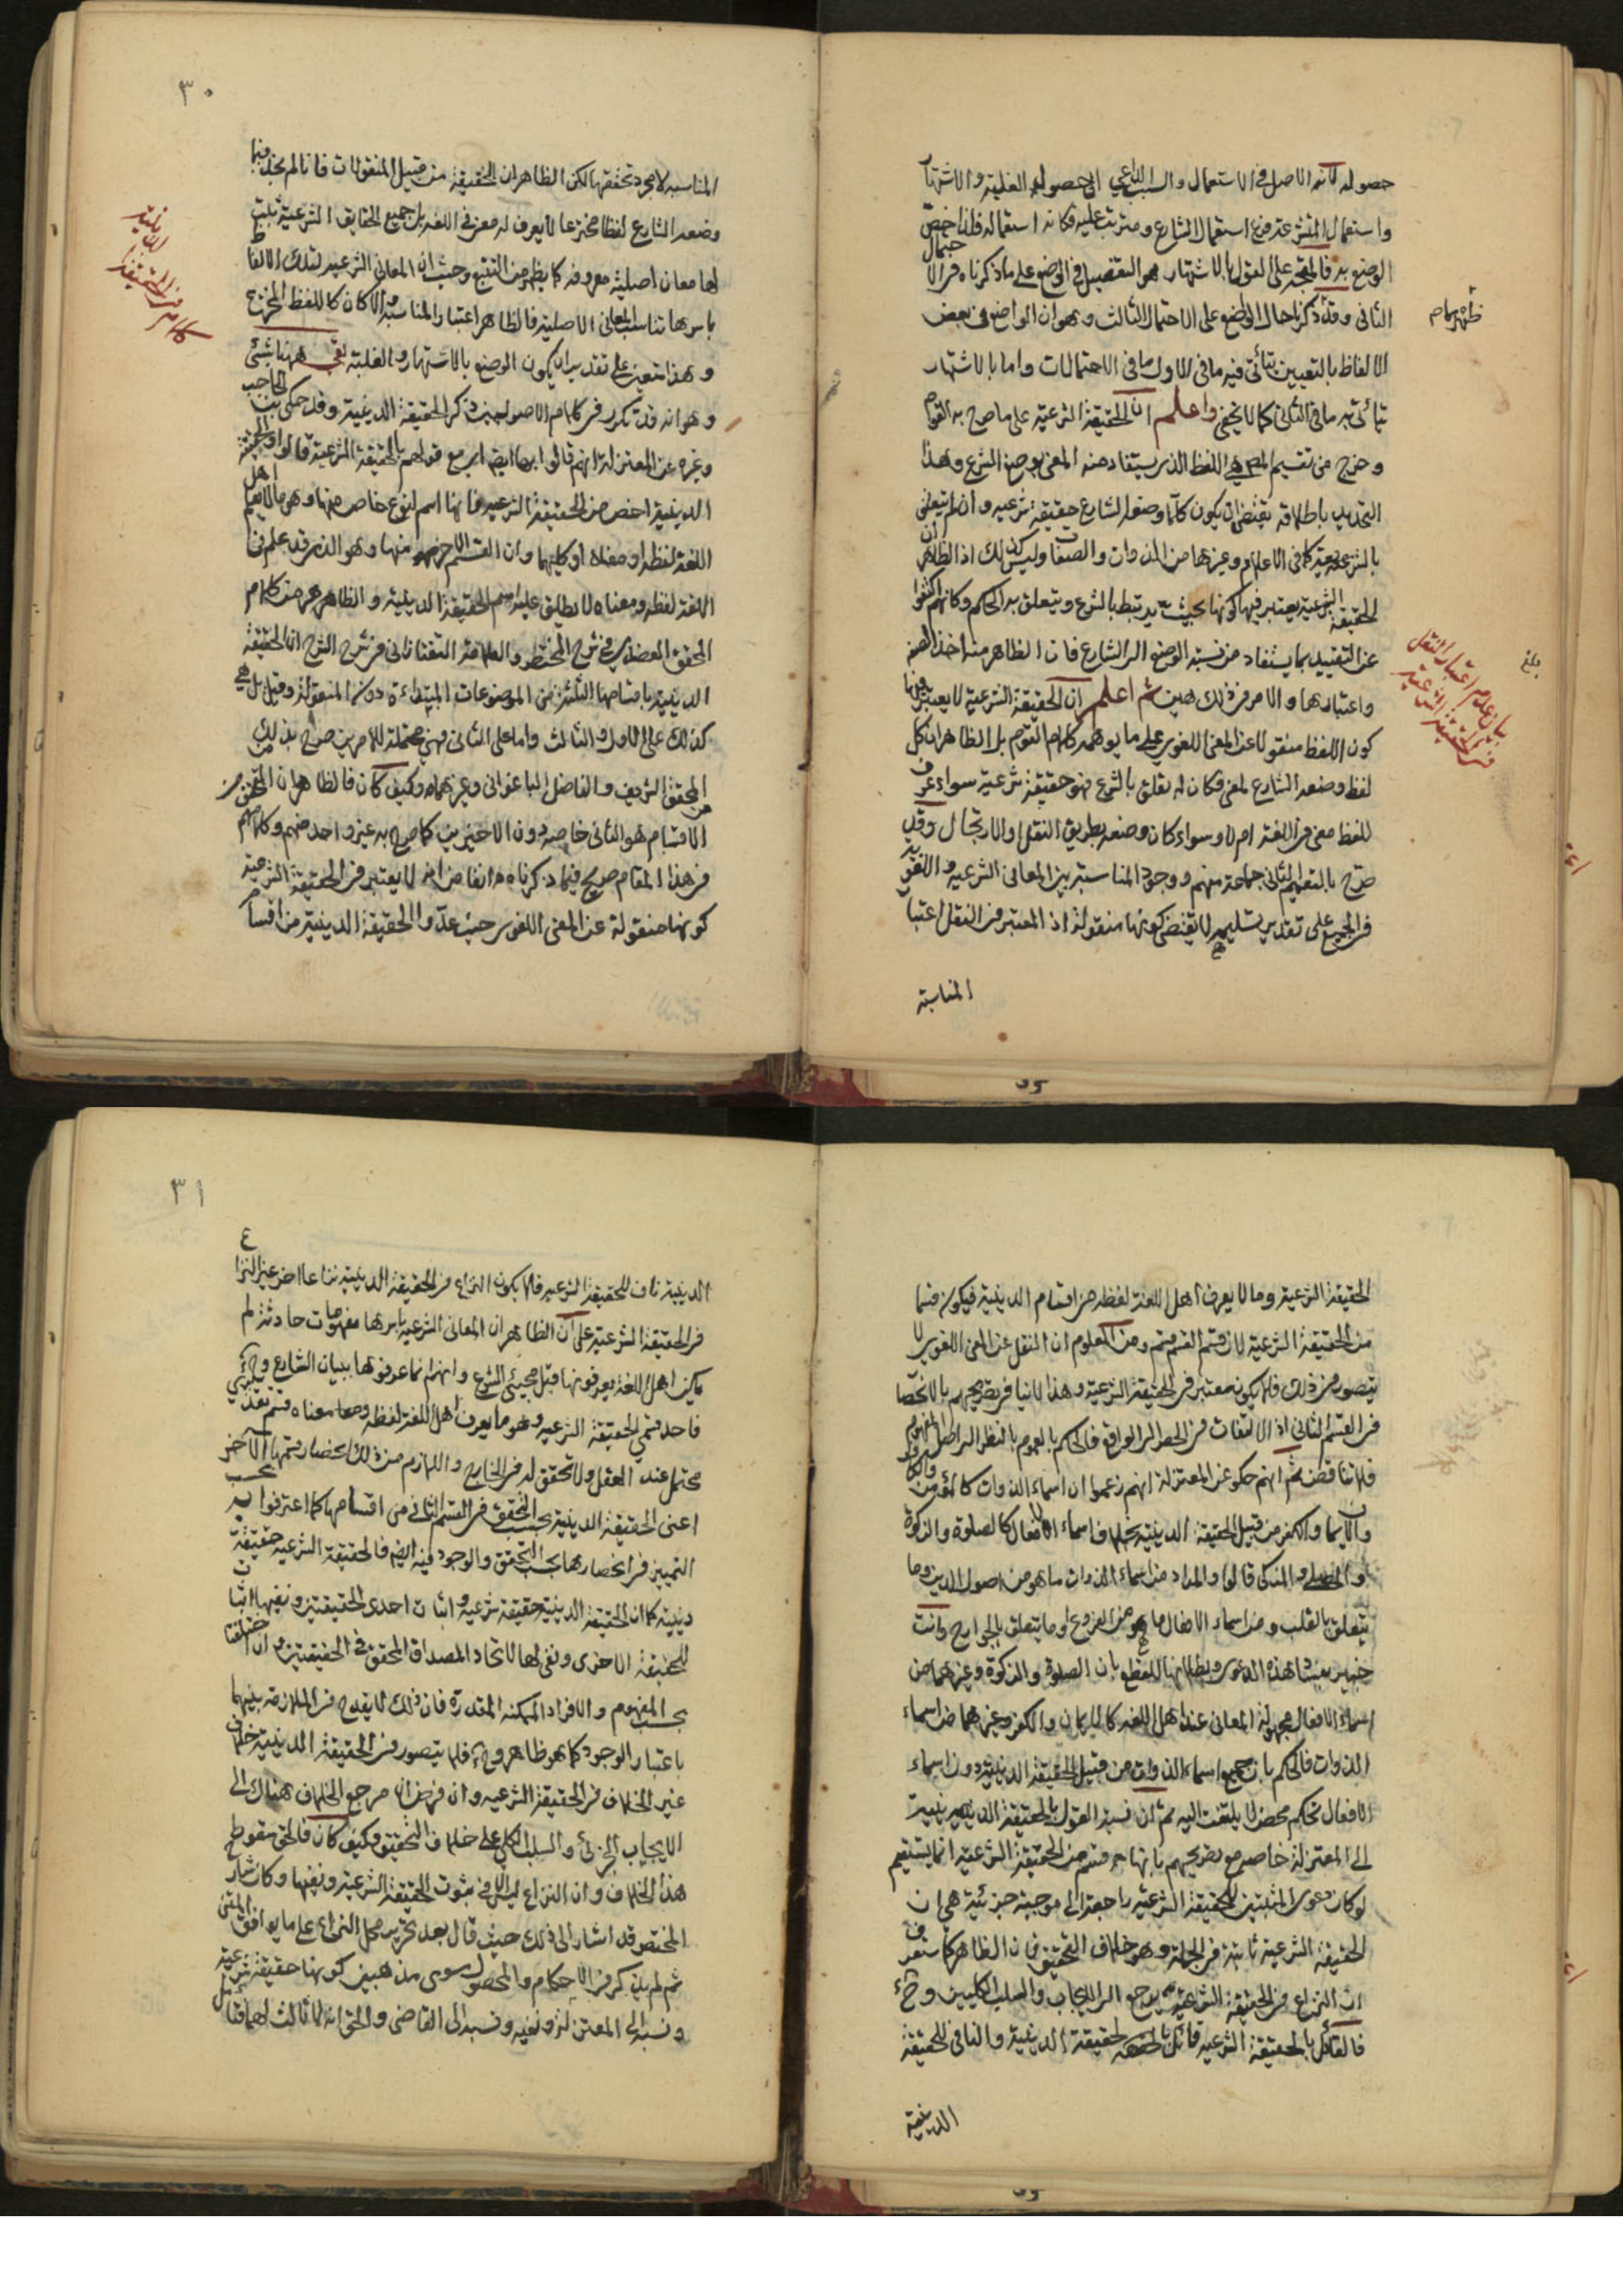 حصوله لأنه الاصل في الاستعمال والسبب الداعي الى حصوله الغلبة والاشتهار
واستعمال المتشرعة فرع استعمال الشارع ومترتب عليه فكانه استعماله فلذا اختص
الوضع به فالمتجه على القول بالاشتهار هو التفصيل في الوضع على ما ذكرناه في الاحتمال
الثاني وقد ذكرنا حال الوضع على الاحتمال الثالث وهو ان الواضع في بعض
الالفاظ بالتعيين يتأتى فيه ما في الاول ما في الاحتمالات واما بالاشتهار
يتأتى به ما في الثاني كما لا يخفى واعلم ان الحقيقة الشرعية على ما صرح به القوم
وخرج من تقسيم هي اللفظ الذي يستفاد منه المعنى بوضع الشرع وهذا
التحديد باطلاقه يقتضي ان يكون كلما وضعه الشارع حقيقة شرعية وان لم يتعلق
بالشرعية كما في الاعلام وغيرها من الذوات والصفات وليس كذلك اذ الظاهر ان
الحقيقة الشرعية يعتبر فيها كونها بحيث يرتبط بالشرع ويتعلق به الحكم وكانهم اكتفوا
عن التقييد بما يستفاد من نسبة الوضع الى الشارع فان الظاهر منه اخذ الصفة
واعتبارها والامر في ذلك هين ثم اعلم ان الحقيقة الشرعية لا يعتبر فيها
كون اللفظ منقولا عن المعنى اللغوي على ما يوهمه كلام القوم بل الظاهر ان كل
لفظ وضعه الشارع لمعنى فكان له تعلق بالشرع فهو حقيقة شرعية سواء عرف
للفظ معنى في اللغة ام لا وسواء كان وضعه بطريق النقل او الارتجال وقد
صرح بالتعميم الثاني جماعة منهم ووجود المناسبة بين المعاني الشرعية واللغوية
في الجميع على تقدير تسليمه لا يقتضي كونها منقولة اذ المعتبر في النقل اعتبار
المناسبة
بيان عدم اعتبار النقل
في الحقيقة الشرعية
بلغ
٣٠
المناسبة لا مجرد تحققها لكن الظاهر ان الحقيقة من قبيل المنقولات فانا لم نجد فيما
وضعه الشارع لفظا مخترعا لا يعرف له معنى في اللغة بل جميع الحقايق الشرعية ثبت
لها معان اصلية معروفة كما يظهر من التتبع وحيث ان المعاني الشرعية لتلك الالفاظ
باسرها تناسب المعاني الاصلية فالظاهر اعتبار المناسبة والا كان كاللفظ المخترع
وهذا متعين على تقدير ان يكون الوضع بالاشتهار والغلبة بقي ههنا شئ
وهو انه قد تكرر في كلام الاصوليين ذكر الحقيقة الدينية وقد حكى ابن الحاجب
وغيره عن المعتزلة انهم قالوا بها ايضا اي مع قولهم بالحقيقة الشرعية قالوا والحقيقة
الدينية اخص من الحقيقة الشرعية فانها اسم لنوع خاص منها وهو ما لا يعلم اهل
اللغة لفظه او معناه او كليهما وان القسم الاخر منها وهو الذي قد علم في
اللغة لفظه ومعناه لا يطلق عليه اسم الحقيقة الدينية والظاهر من كلام
المحقق العضدي في شرح المختصر والعلامة التفتازاني في شرح الشرح ان الحقيقة
الدينية باقسامها الثلثة من الموضوعات المبتداءة دون المنقولة وقيل بل هي
كذلك على الاول والثالث واما على الثاني فهي محتملة للامرين صرح بذلك
المحقق الشريف والفاضل الباغنوي وغيرهما وكيف كان فالظاهر ان المتحقق من
الاقسام هو الثاني خاصة دون الاخيرين كما صرح به غير واحد منهم وكلامهم
في هذا المقام صريح فيما ذكرناه انفا من انه لا يعتبر في الحقيقة الشرعية
كونها منقولة عن المعنى اللغوي حيث عدوا الحقيقة الدينية من اقسام
الحقيقة الشرعية وما لا يعرف اهل اللغة لفظه من اقسام الدينية فيكون قسما
من الحقيقة الشرعية لان قسم القسم قسم ومن المعلوم ان النقل عن المعنى اللغوي لا
يتصور في ذلك فلا يكون معتبرا في الحقيقة الشرعية وهذا لا ينافي تصريحهم بالانحصار
في القسم الثاني اذ الالتفات في الحصر الى الواقع فالحكم بالعموم بالنظر الى اصل المفهوم
فلا تناقض ثم انهم حكو عن المعتزلة انهم زعموا ان اسماء الذوات كالمؤمن والكافر
والايمان والكفر من قبيل الحقيقة الدينية بخلاف اسماء الافعال كالصلوة والزكوة
والمصلي والمزكي قالوا والمراد من اسماء الذوات ما هو من اصول الدين وما
يتعلق بالقلب ومن اسماء الافعال ما هو من الفروع او ما يتعلق بالجوارح وانت
خبير بفساد هذه الدعوى وبطلانها للقطع بان الصلوة والزكوة وغيرهما من
اسماء الافعال مجهولة المعاني عند اهل اللغة كالايمان والكفر وغيرهما من اسماء
الذوات فالحكم بان جميع اسماء الذوات من قبيل الحقيقة الدينية دون اسماء
الافعال تحكم محض لا يلتفت اليه ثم ان نسبة القول بالحقيقة الدينية
الى المعتزلة خاصة مع تصريحهم بانها قسم من الحقيقة الشرعية انما يستقيم
لو كان دعوى المثبتين للحقيقة الشرعية راجعة الى موجبة جزئية هي ان
الحقيقة الشرعية ثابتة في الجملة وهو خلاف التحقيق فان الظاهر كما ستعرف
ان النزاع في الحقيقة الشرعية يرجع الى الايجاب والسلب الكليين وح
فالقائل بالحقيقة الشرعية قائل بالحقيقة الدينية والنافي للحقيقة
الدينية
٣١
الدينية ناف للحقيقة الشرعية فلا يكون النزاع في الحقيقة الدينية نزاعا اخر غير النزاع
في الحقيقة الشرعية على ان الظاهر ان المعاني الشرعية باسرها مفهومات حادثة لم
يكن اهل اللغة يعرفونها قبل مجيئ الشرع وانهم انما عرفوها ببيان الشارع وح
فاحد قسمي الحقيقة الشرعية وهو ما يعرف اهل اللغة لفظه ومعناه قسم تقديري
محتمل عند العقل ولا تحقق له في الخارج واللازم من ذلك انحصار قسمها الاخر
اعني الحقيقة الدينية بحسب التحقق في القسم الثاني من اقسامها كما اعترفوا به
التمييز في انحصارها بحسب التحقق والوجود فيه ايضا فالحقيقة الشرعية حقيقة
دينية كما ان الحقيقة الدينية حقيقة شرعية واثبات احدى الحقيقتين ونفيها اثبات
للحقيقة الاخرى ونفي لها لاتحاد المصداق المحقق في الحقيقتين وان اختلفتا
بحسب المفهوم والافراد الممكنة المقدرة فان ذلك لا يقدح في الملازمة بينهما
باعتبار الوجود كما هو ظاهر وح فلا يتصور في الحقيقة الدينية خلاف
غير الخلاف في الحقيقة الشرعية وان فرض ان مرجع الخلاف هناك الى
الايجاب الجزئي والسلب الكلي على خلاف التحقيق وكيف كان فالحق سقوط
هذا الخلاف وان النزاع ليس الا في ثبوت الحقيقة الشرعية ونفيها وكان شارح
المختصر قد اشار الى ذلك حيث قال بعد تحرير محل النزاع على ما يوافق المتن
ثم لم يذكر في الاحكام والمحصول سوى مذهبين كونها حقيقة شرعية
ونسبه الى المعتزلة ونفيه ونسبه الى القاضي والحق انه لا ثالث لهما